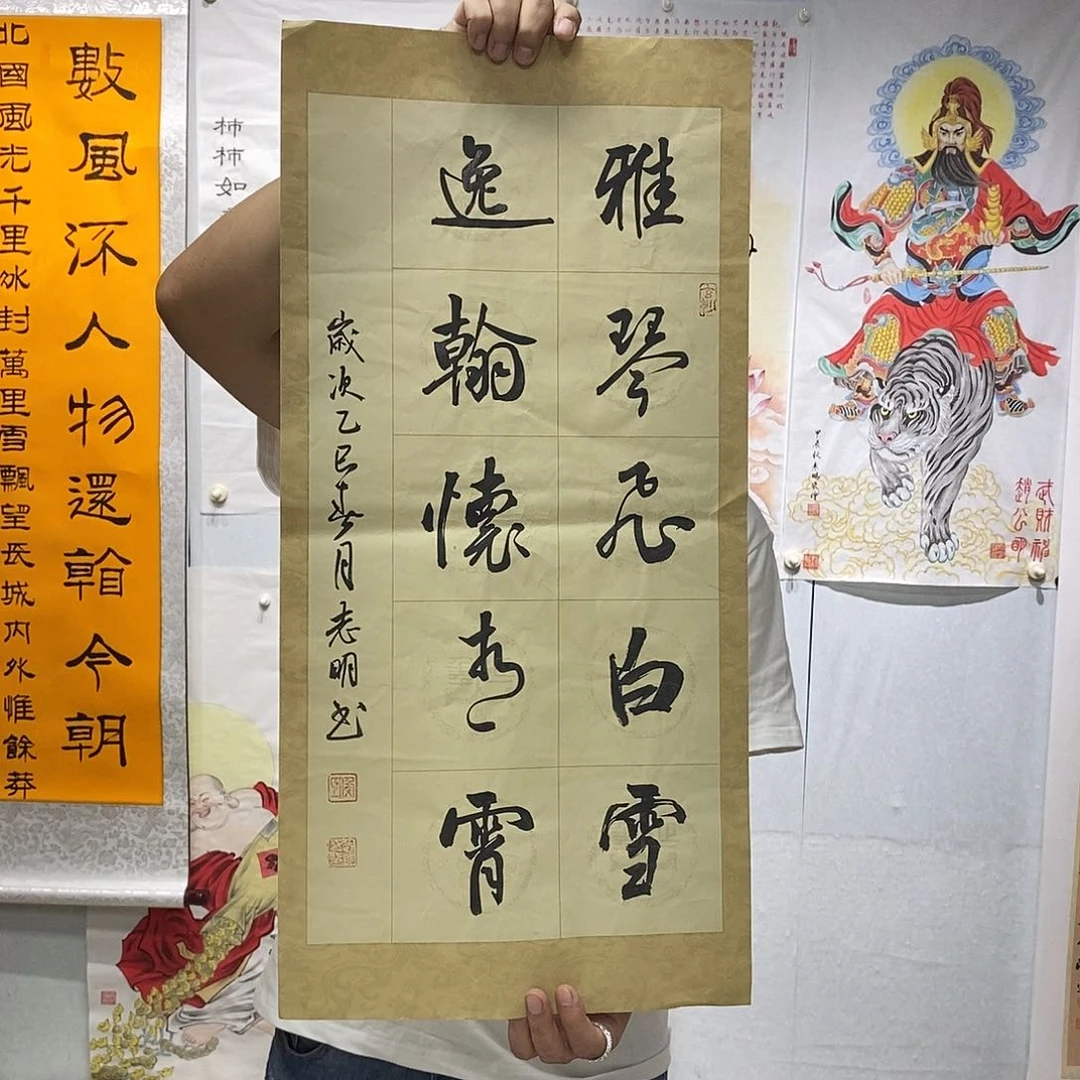 武財神
趙公明
雅琴飛白雪
逸翰懷青霄
歲次乙巳春月志明书
柿柿如
數風流人物還看今朝
北國風光千里冰封萬里雪飄望長城內外惟餘莽